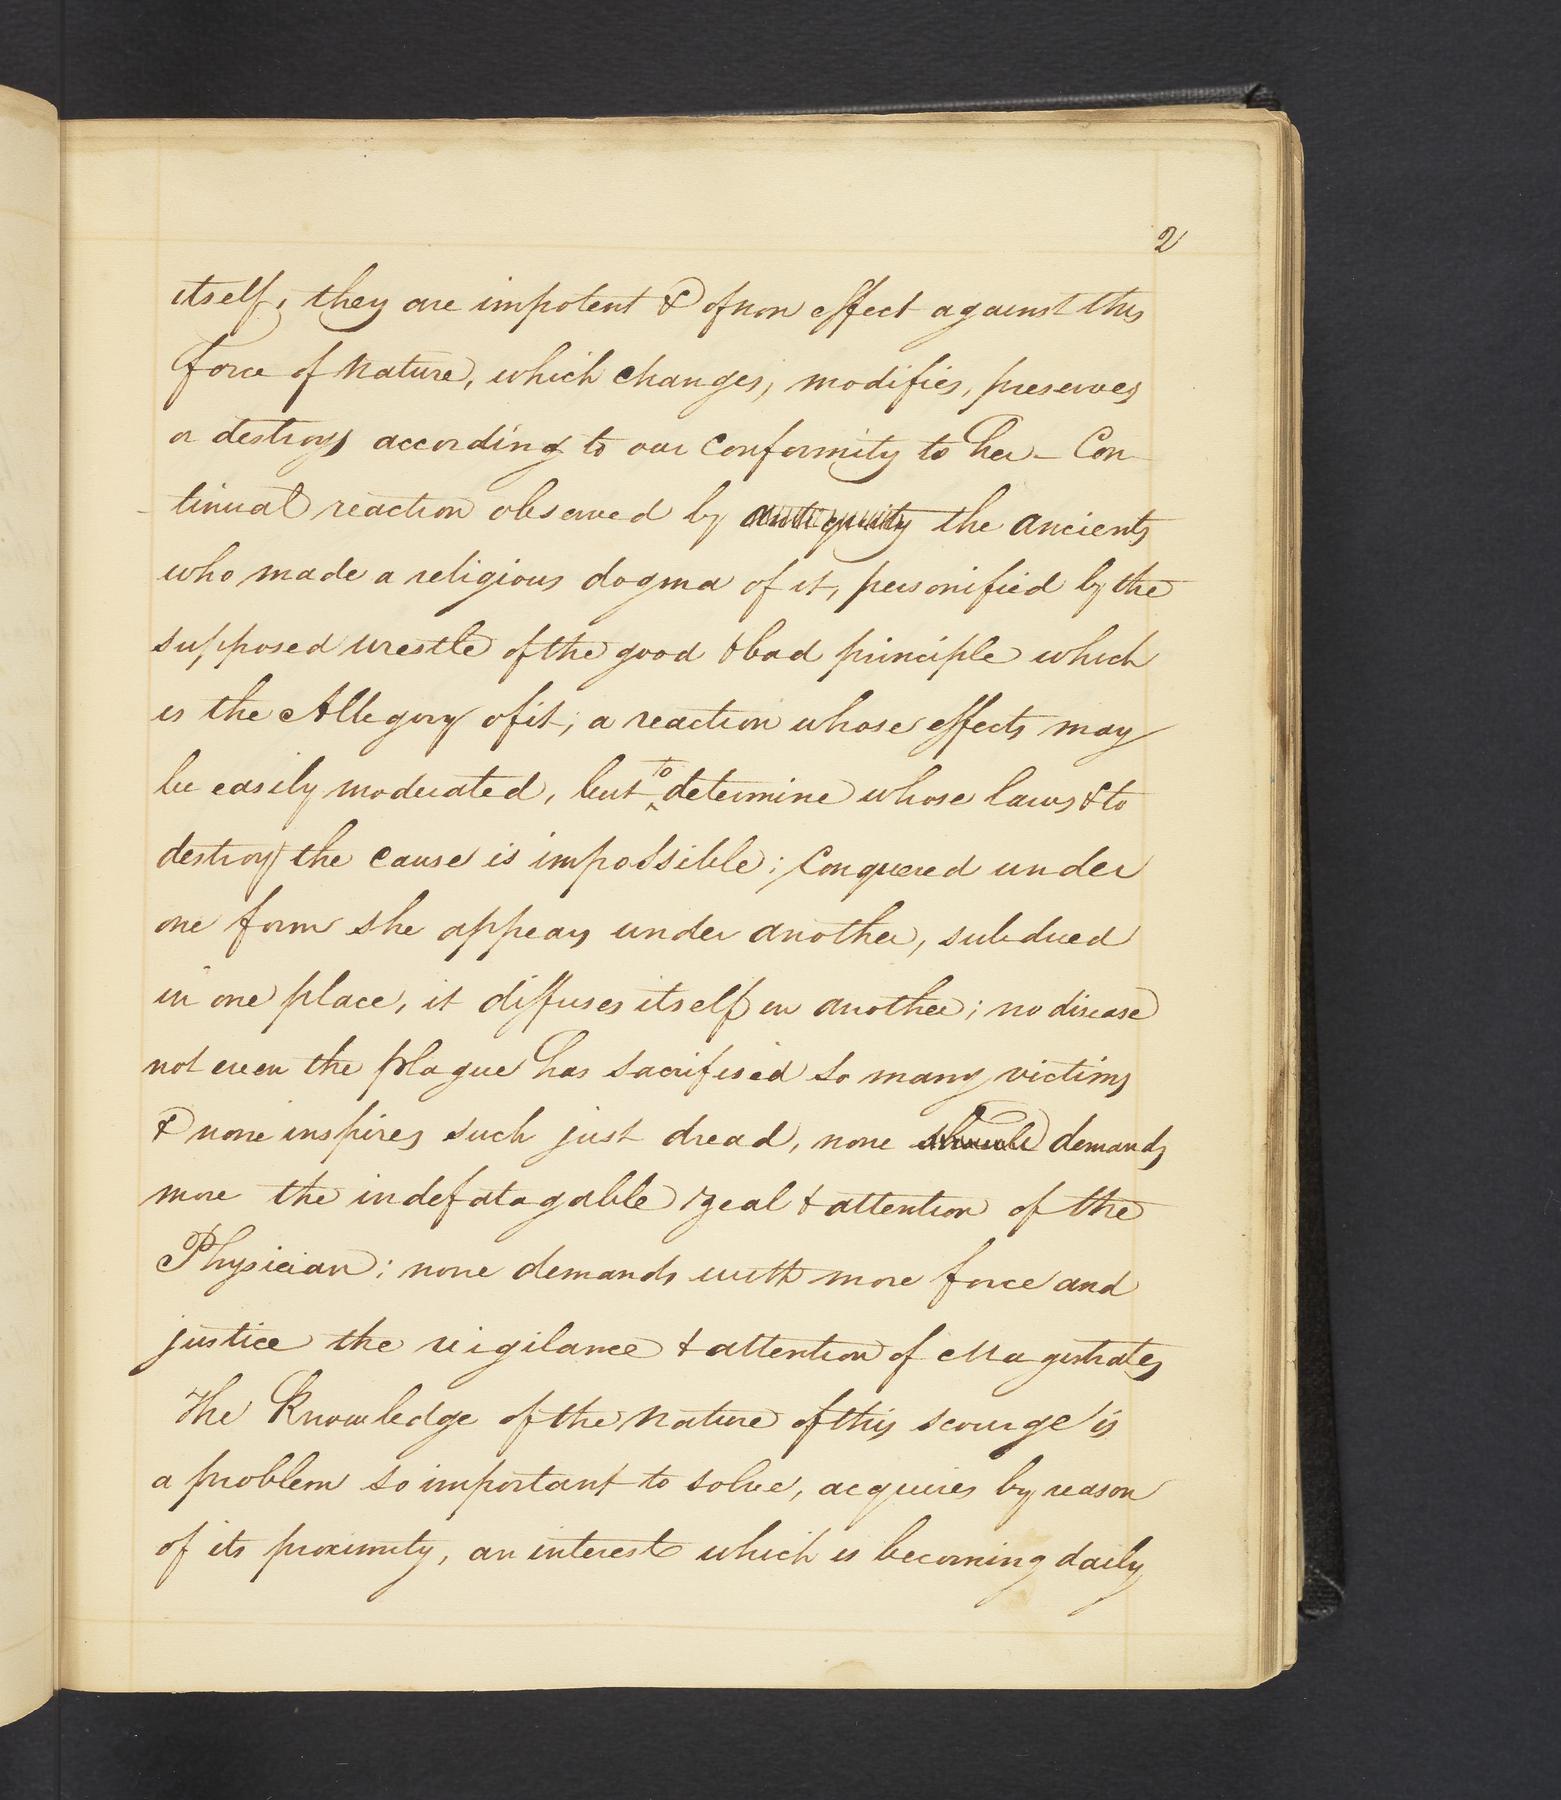 2
itself, they are impotent & of non effect against this
force of Nature, which changes, modifies, preserves
or destroys according to our Conformity to her - Con-
tinual reaction observed by antiquity the Ancients
who made a religious dogma of it, personified by the
supposed wrestle of the good & bad principle which
is the Allegory of it; a reaction whose effects may
be easily moderated, but to determine whose laws & to
destroy the Cause is impossible; Conquered under
one form she appears under another, subdued
in one place, it diffuses itself in another; no disease
not even the plague has sacrifised so many victims
& none inspires such just dread, none should demands
more the indefatagable zeal & attention of the
Physician; none demands with more force and
justice the vigilance & attention of Magistrates
The Knowledge of the Nature of this scourge is
a problem so important to solve, acquires by reason
of its proximity, an interest which is becoming daily